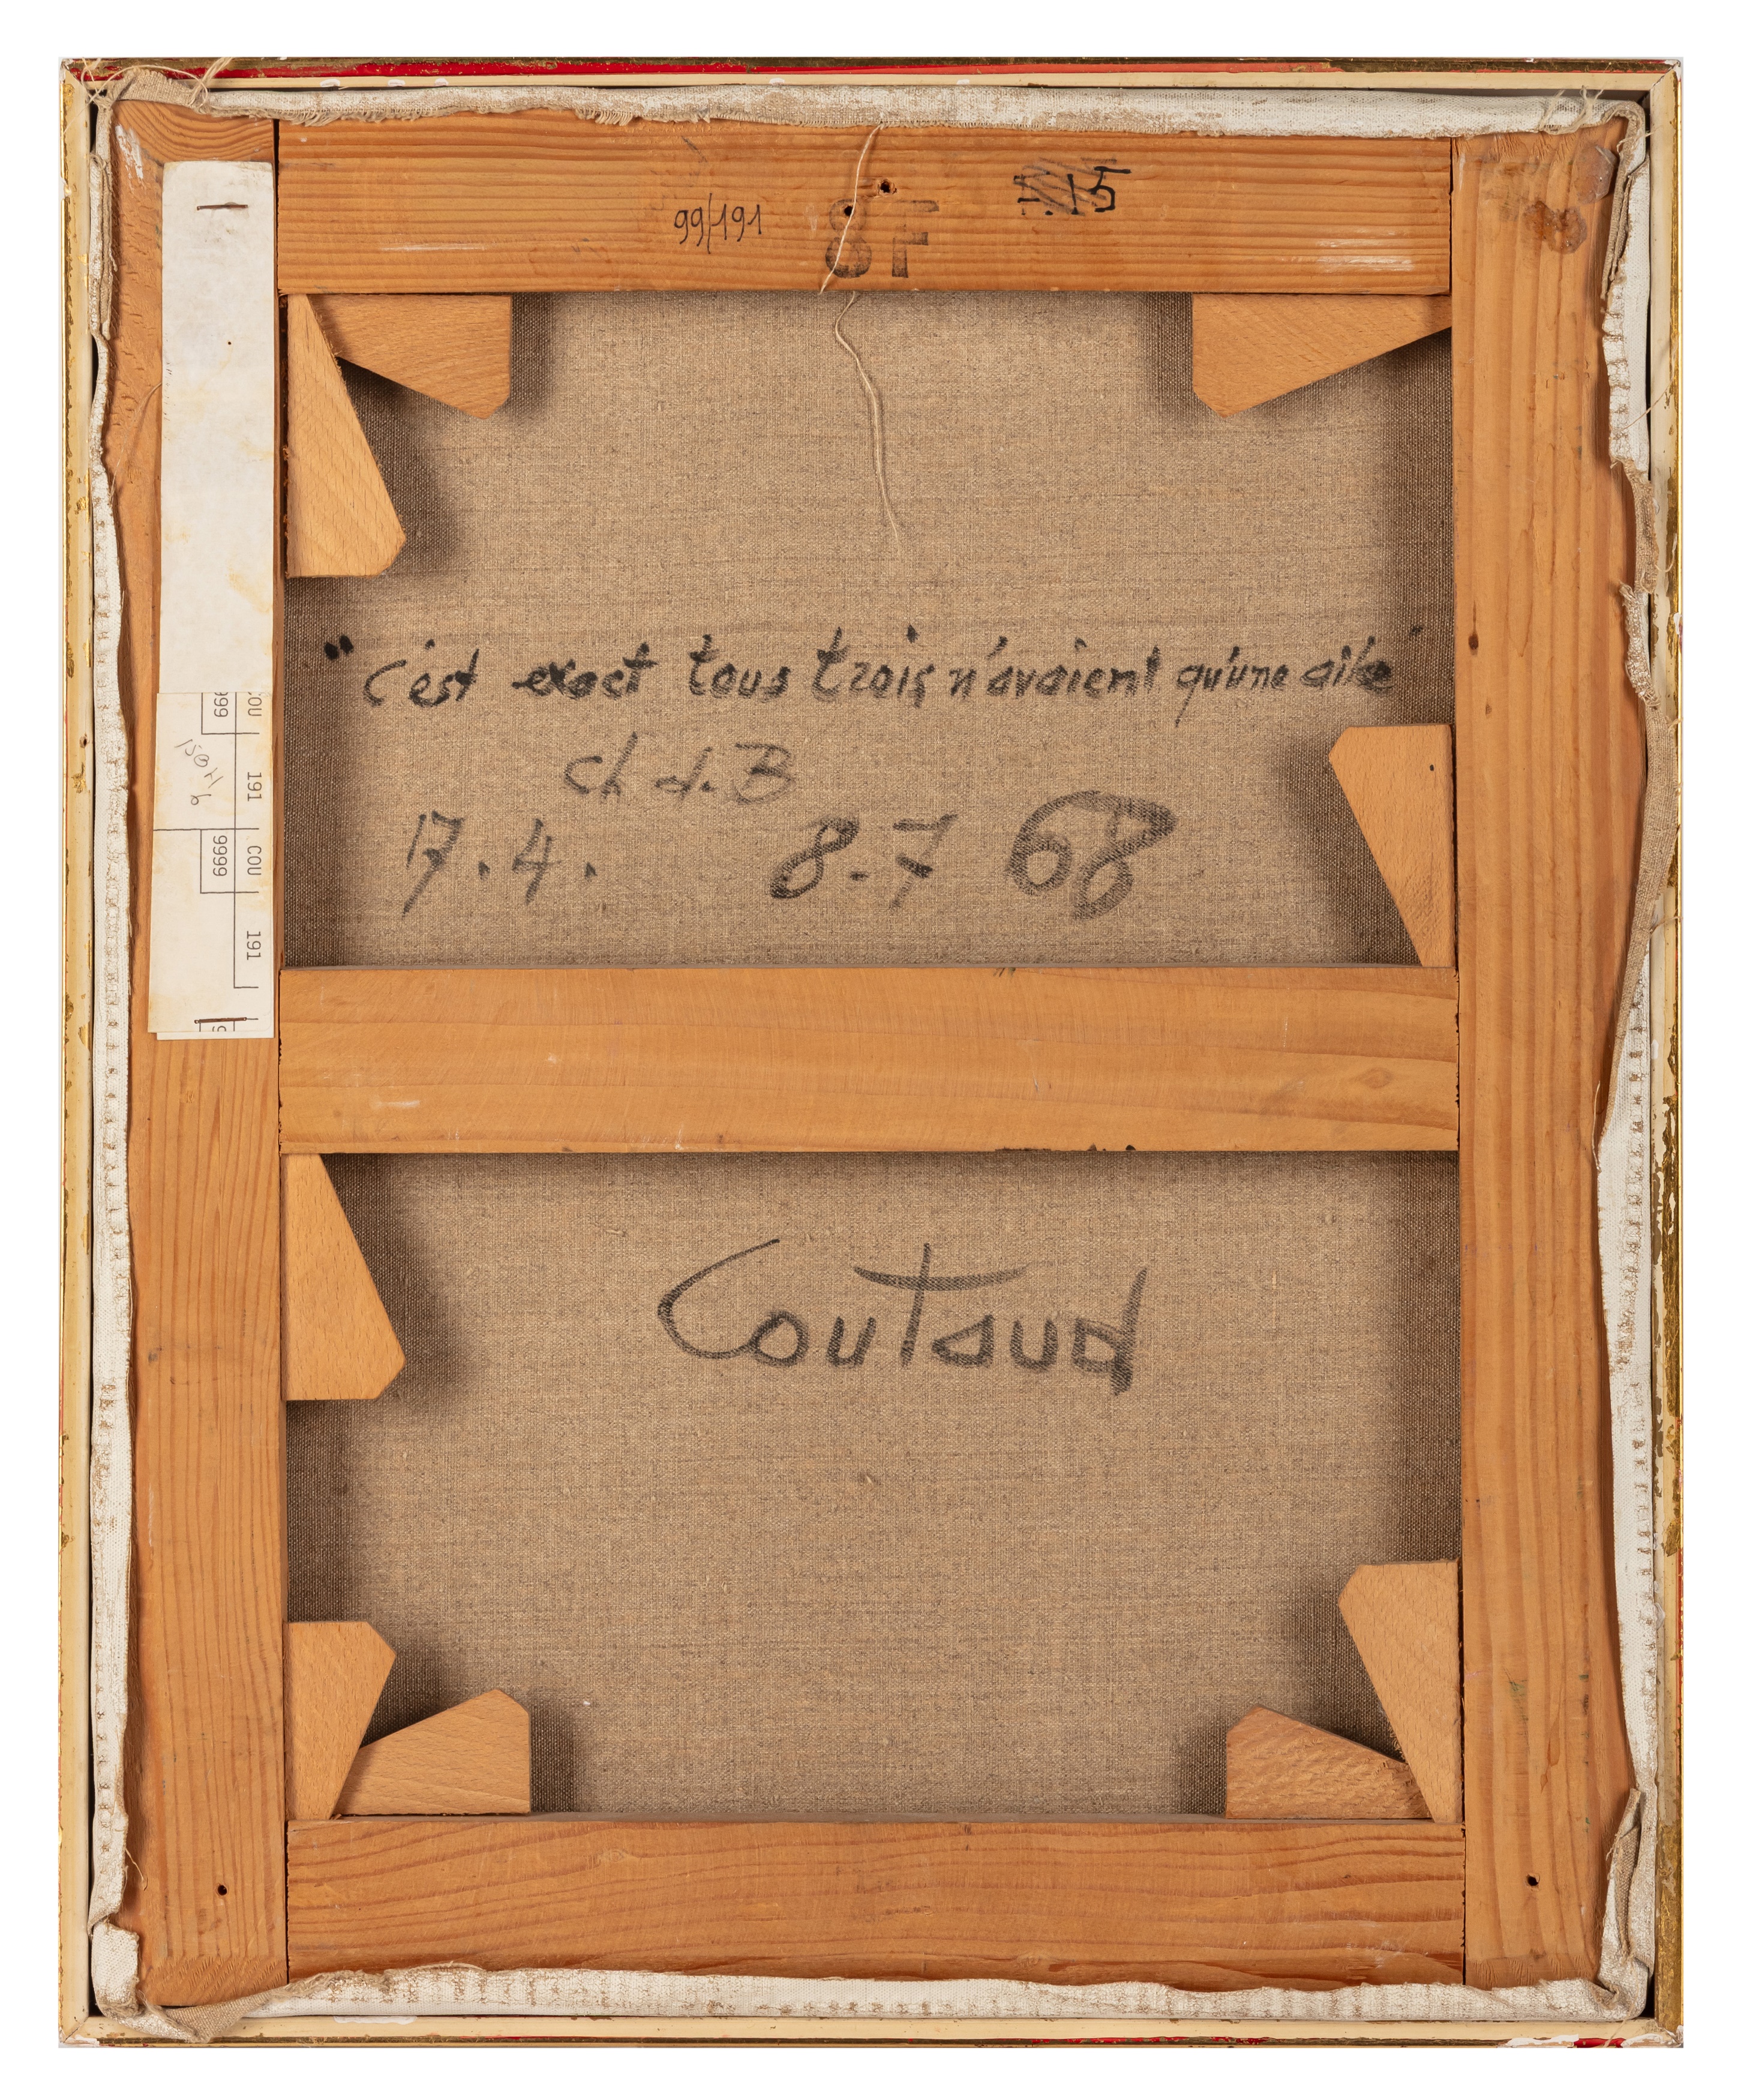 99/191
8F
15
"c'est exact tous trois n'avaient qu'une aile"
Ch d. B
17.4. 8-7 68
COU 191
999
COU 191
9999
Coutaud